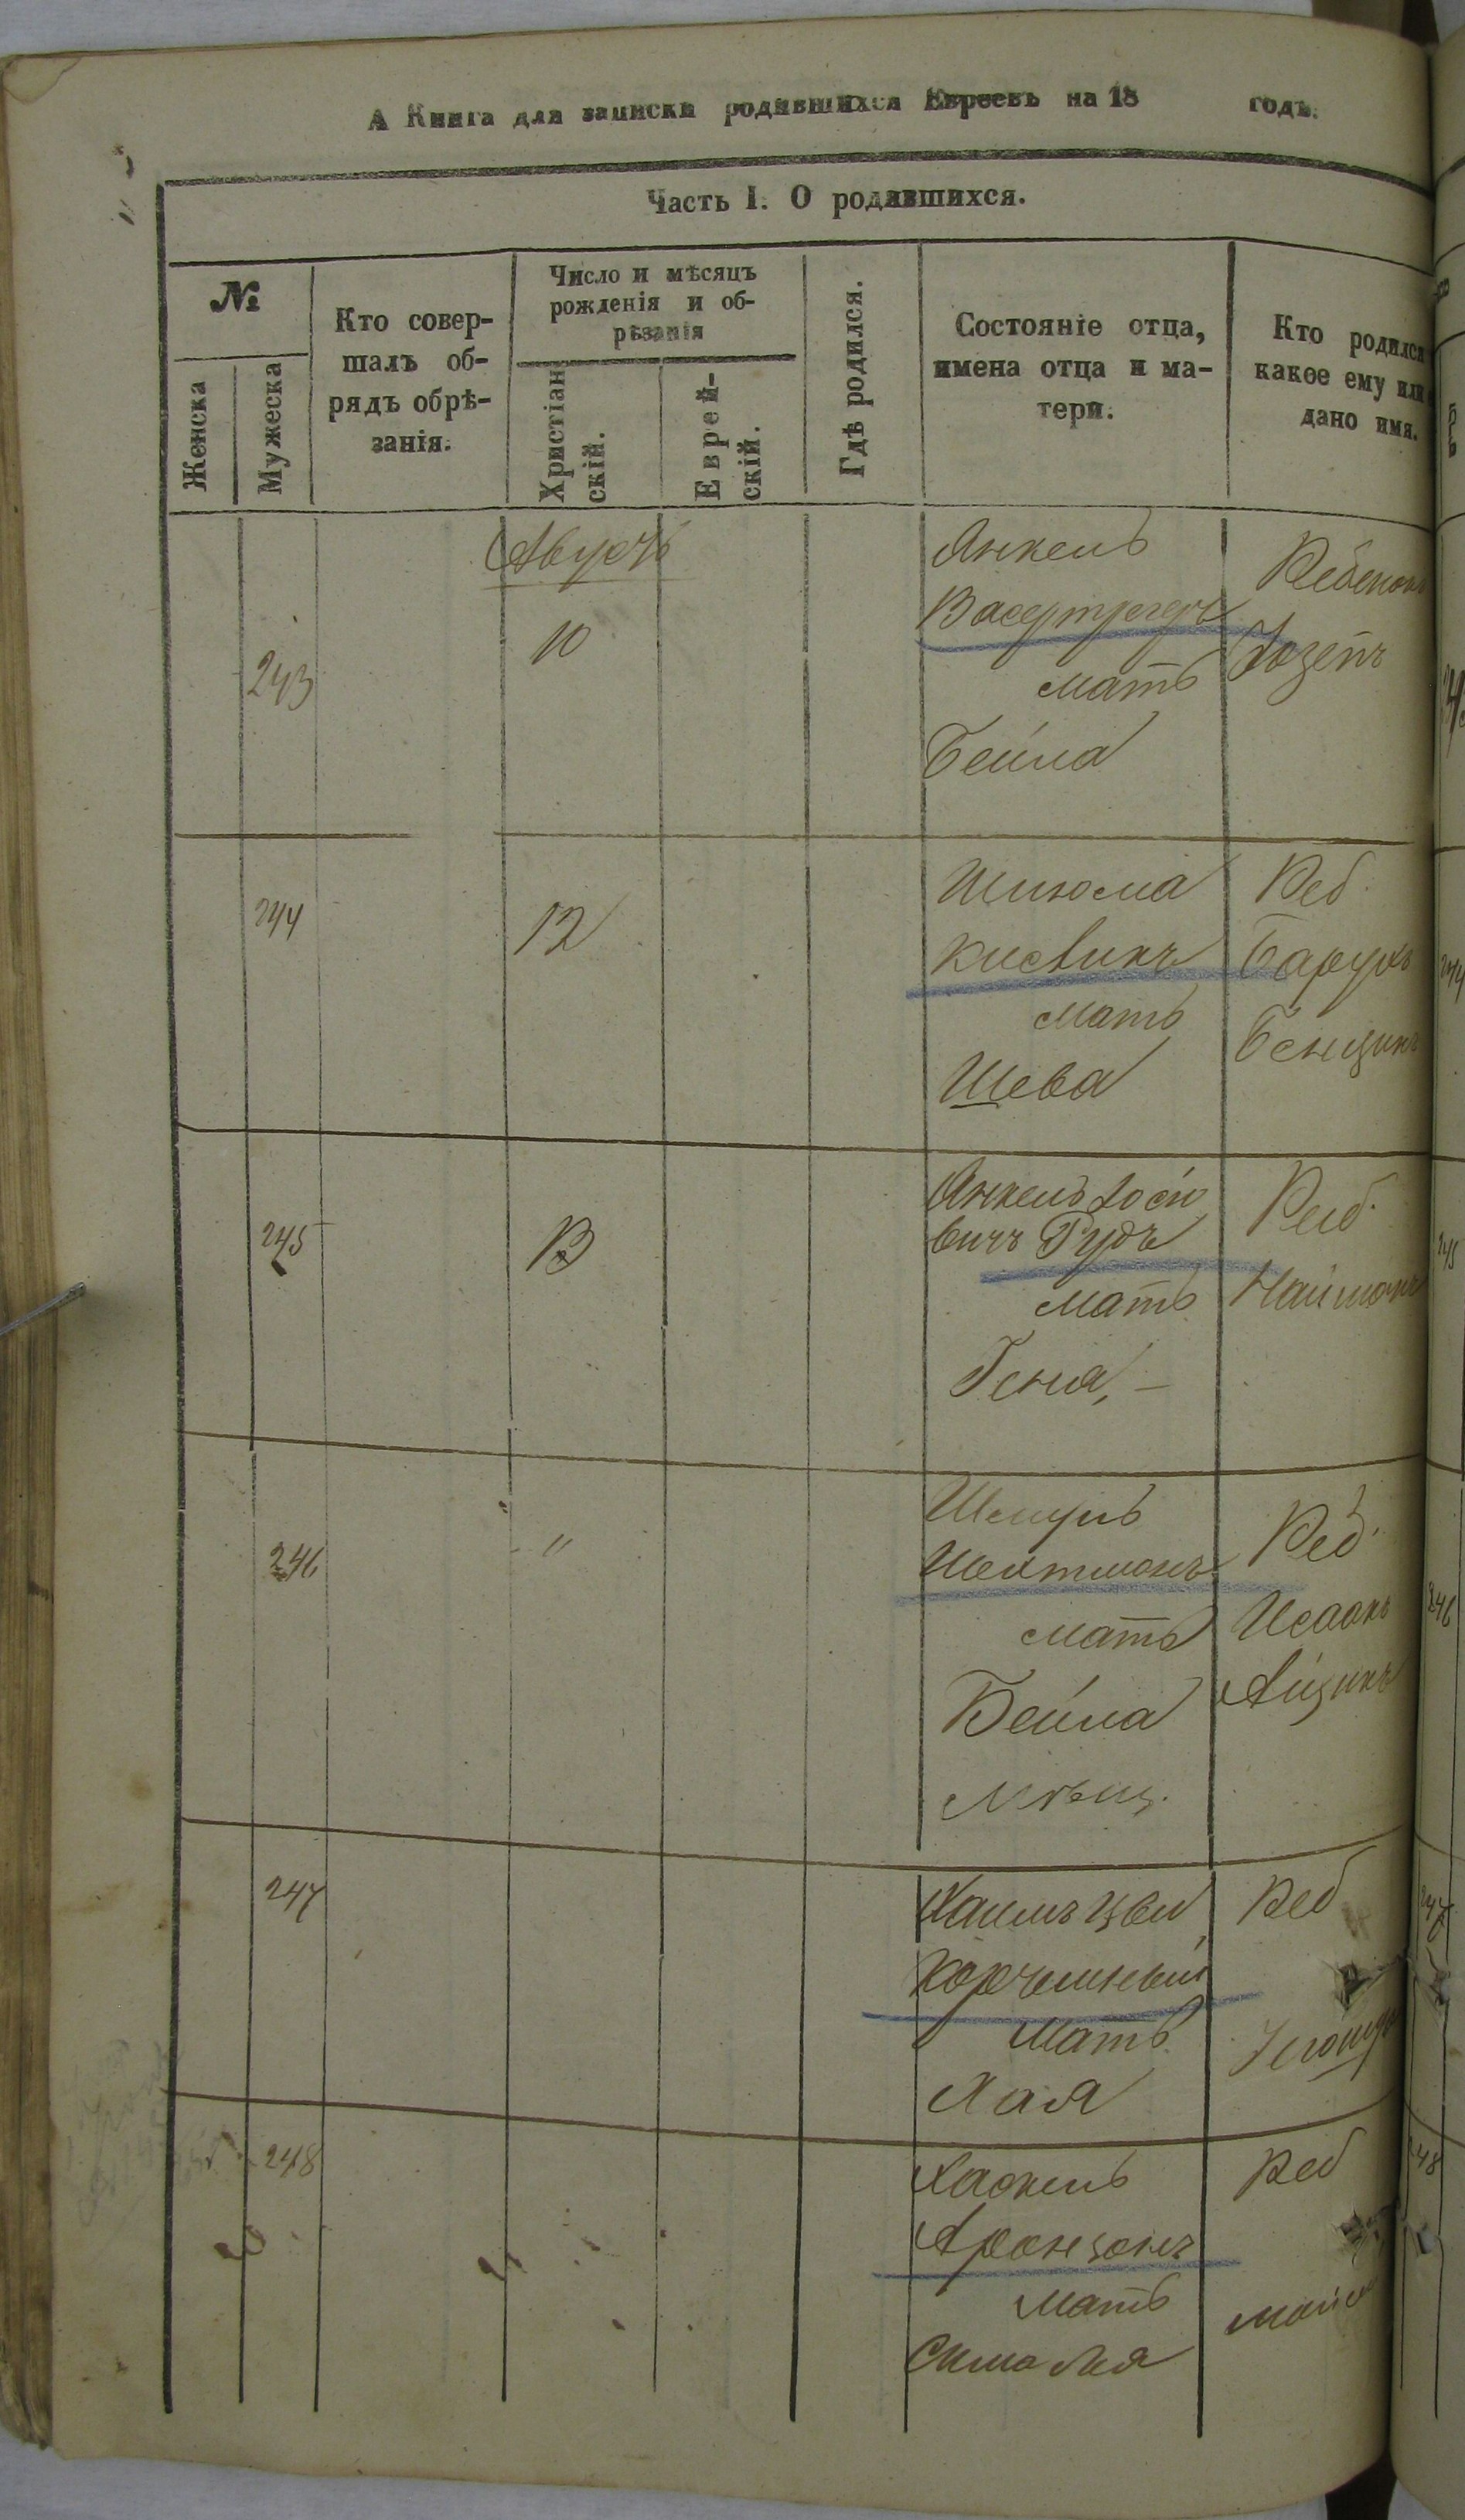 А Книга для записки родившихся Евреевъ на 18 годъ.
Часть I. О родившихся.
№
Женска
Мужеска
Кто совер-
шалъ об-
рядъ обрѣ-
занія.
Число и мѣсяцъ
рожденія и об-
рѣзанія
Христіан
скій.
Еврей-
скій.
Гдѣ родился.
Состояніе отца,
имена отца и ма-
тери.
Кто родился
какое ему или
дано имя.
Августъ
243
10
Янкель
Васертрегеръ
мать
Бейла
Ребенокъ
Іозепъ
244
12
Шлюма
Кисвикъ
мать
Шева
Реб.
Барухъ
Бенцинъ
245
13
Янкель Іосіо
вичъ Рудъ
мать
Геня, —
Реб.
246
"
Шмуль
Шехтманъ
мать
Бейла
Мѣщ.
Реб.
Исаакъ
Айцикъ
247
Хаимъ Цви
Корчемный
мать
Хая
Реб
248
Хаскель
Аронзонъ
мать
Сима Лея
Реб
244
245
246
247
48